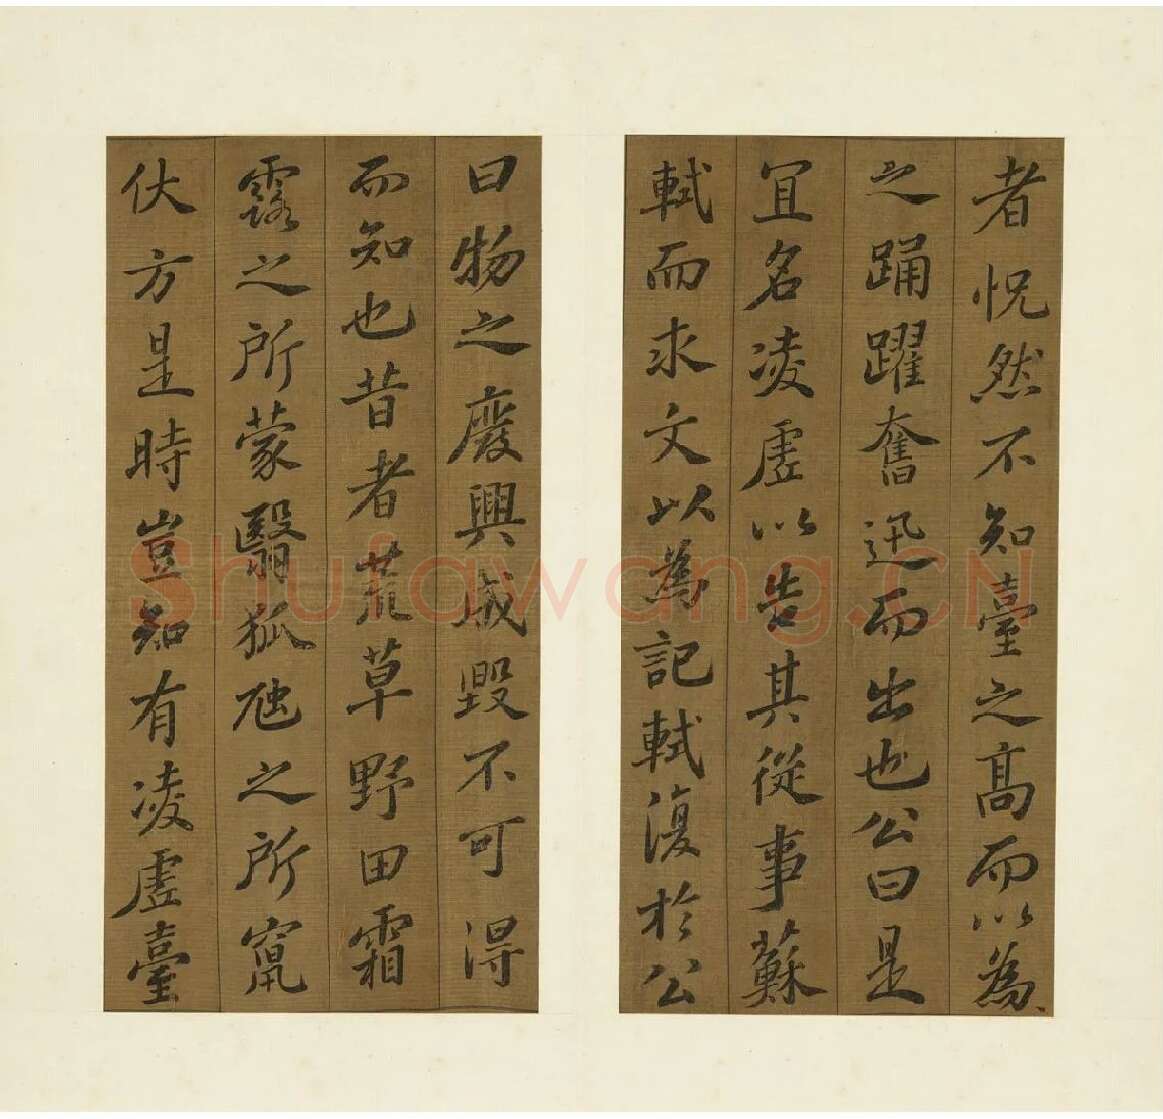 者怳然不知臺之髙而以為
之踊躍奮迅而出也公曰是
宜名凌虛以告其從事蘇
軾而求文以為記軾復於公
曰物之廢興成毀不可得
而知也昔者荒草野田霜
露之所蒙翳狐虺之所竄
伏方是時豈知有凌虛臺
Shufawang.CN